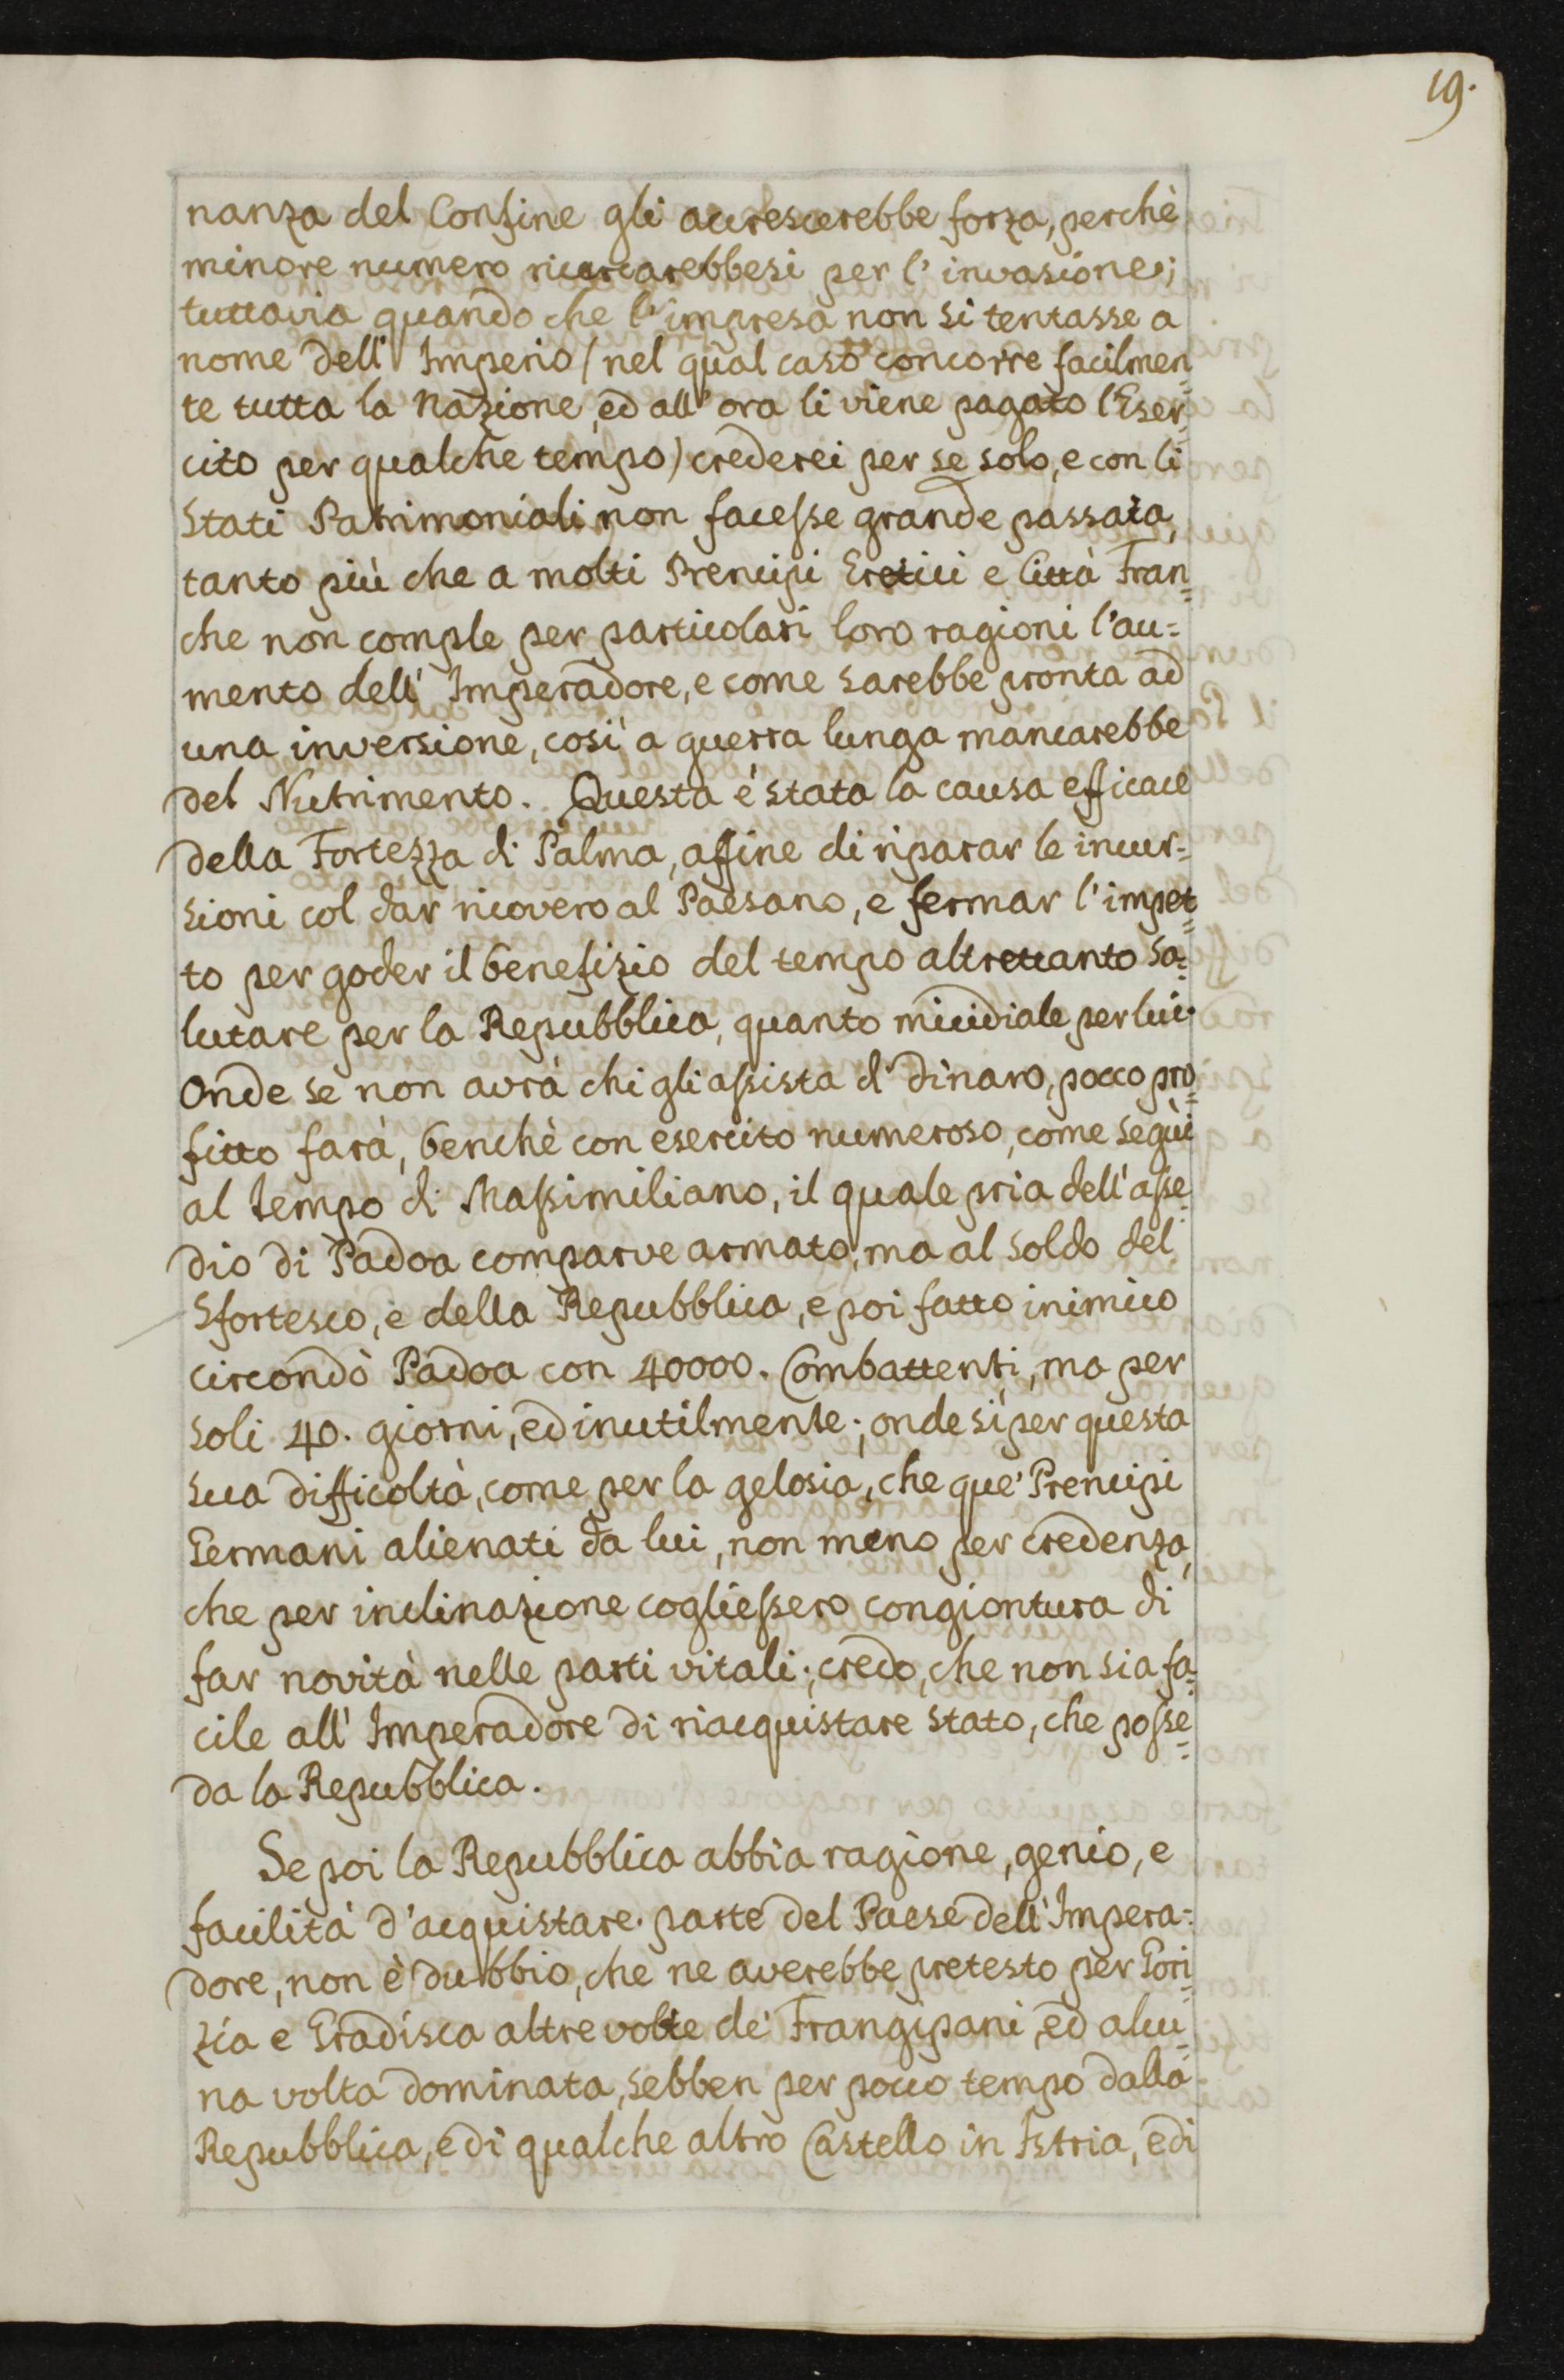 19.
nanza del Confine gli accrescerebbe forza, perchè
minore numero ricercarebbesi per l'invasione;
tuttavia quando che l'impresa non si tentasse a
nome dell' Imperio (nel qual caso concorre facilmen=
te tutta la Nazione, ed all'ora li viene pagato l'Eser=
cito per qualche tempo) crederei per se solo, e con li
Stati Patrimoniali non facesse grande passata,
tanto più che a molti Prencipi Eretici e Città Fran=
che non comple per particolari loro ragioni l'au=
mento dell' Imperadore, e come sarebbe pronta ad
una inversione, così a guerra lunga mancarebbe
del Nutrimento. Questa è stata la causa efficace
della Fortezza di Palma, affine di riparar le incur=
sioni col dar ricovero al Paesano, e fermar l'impet=
to per goder il benefizio del tempo altrettanto sa=
lutare per la Repubblica, quanto micidiale per lui.
Onde se non avrà chi gli assista di dinaro, pocco pro=
fitto farà, benchè con esercito numeroso, come seguì
al tempo di Massimiliano, il quale pria dell'asse=
dio di Padoa comparve armato, ma al soldo del
Sfortesco, e della Repubblica, e poi fatto inimico
circondò Padoa con 40000. Combattenti, ma per
soli 40. giorni, ed inutilmente; onde sì per questa
sua difficoltà, come per la gelosia, che que' Prencipi
Germani alienati da lui, non meno per credenza,
che per inclinazione cogliessero congiontura di
far novità nelle parti vitali; credo, che non sia fa=
cile all' Imperadore di riacquistare stato, che posse=
da la Repubblica.
Se poi la Repubblica abbia ragione, genio, e
facilità d'acquistare parte del Paese dell'Impera=
dore, non è dubbio, che ne averebbe pretesto per Gori=
zia e Gradisca altre volte de' Frangipani, ed alcu=
na volta dominata, sebben per pocco tempo dalla
Repubblica, e di qualche altro Castello in Istria, e di